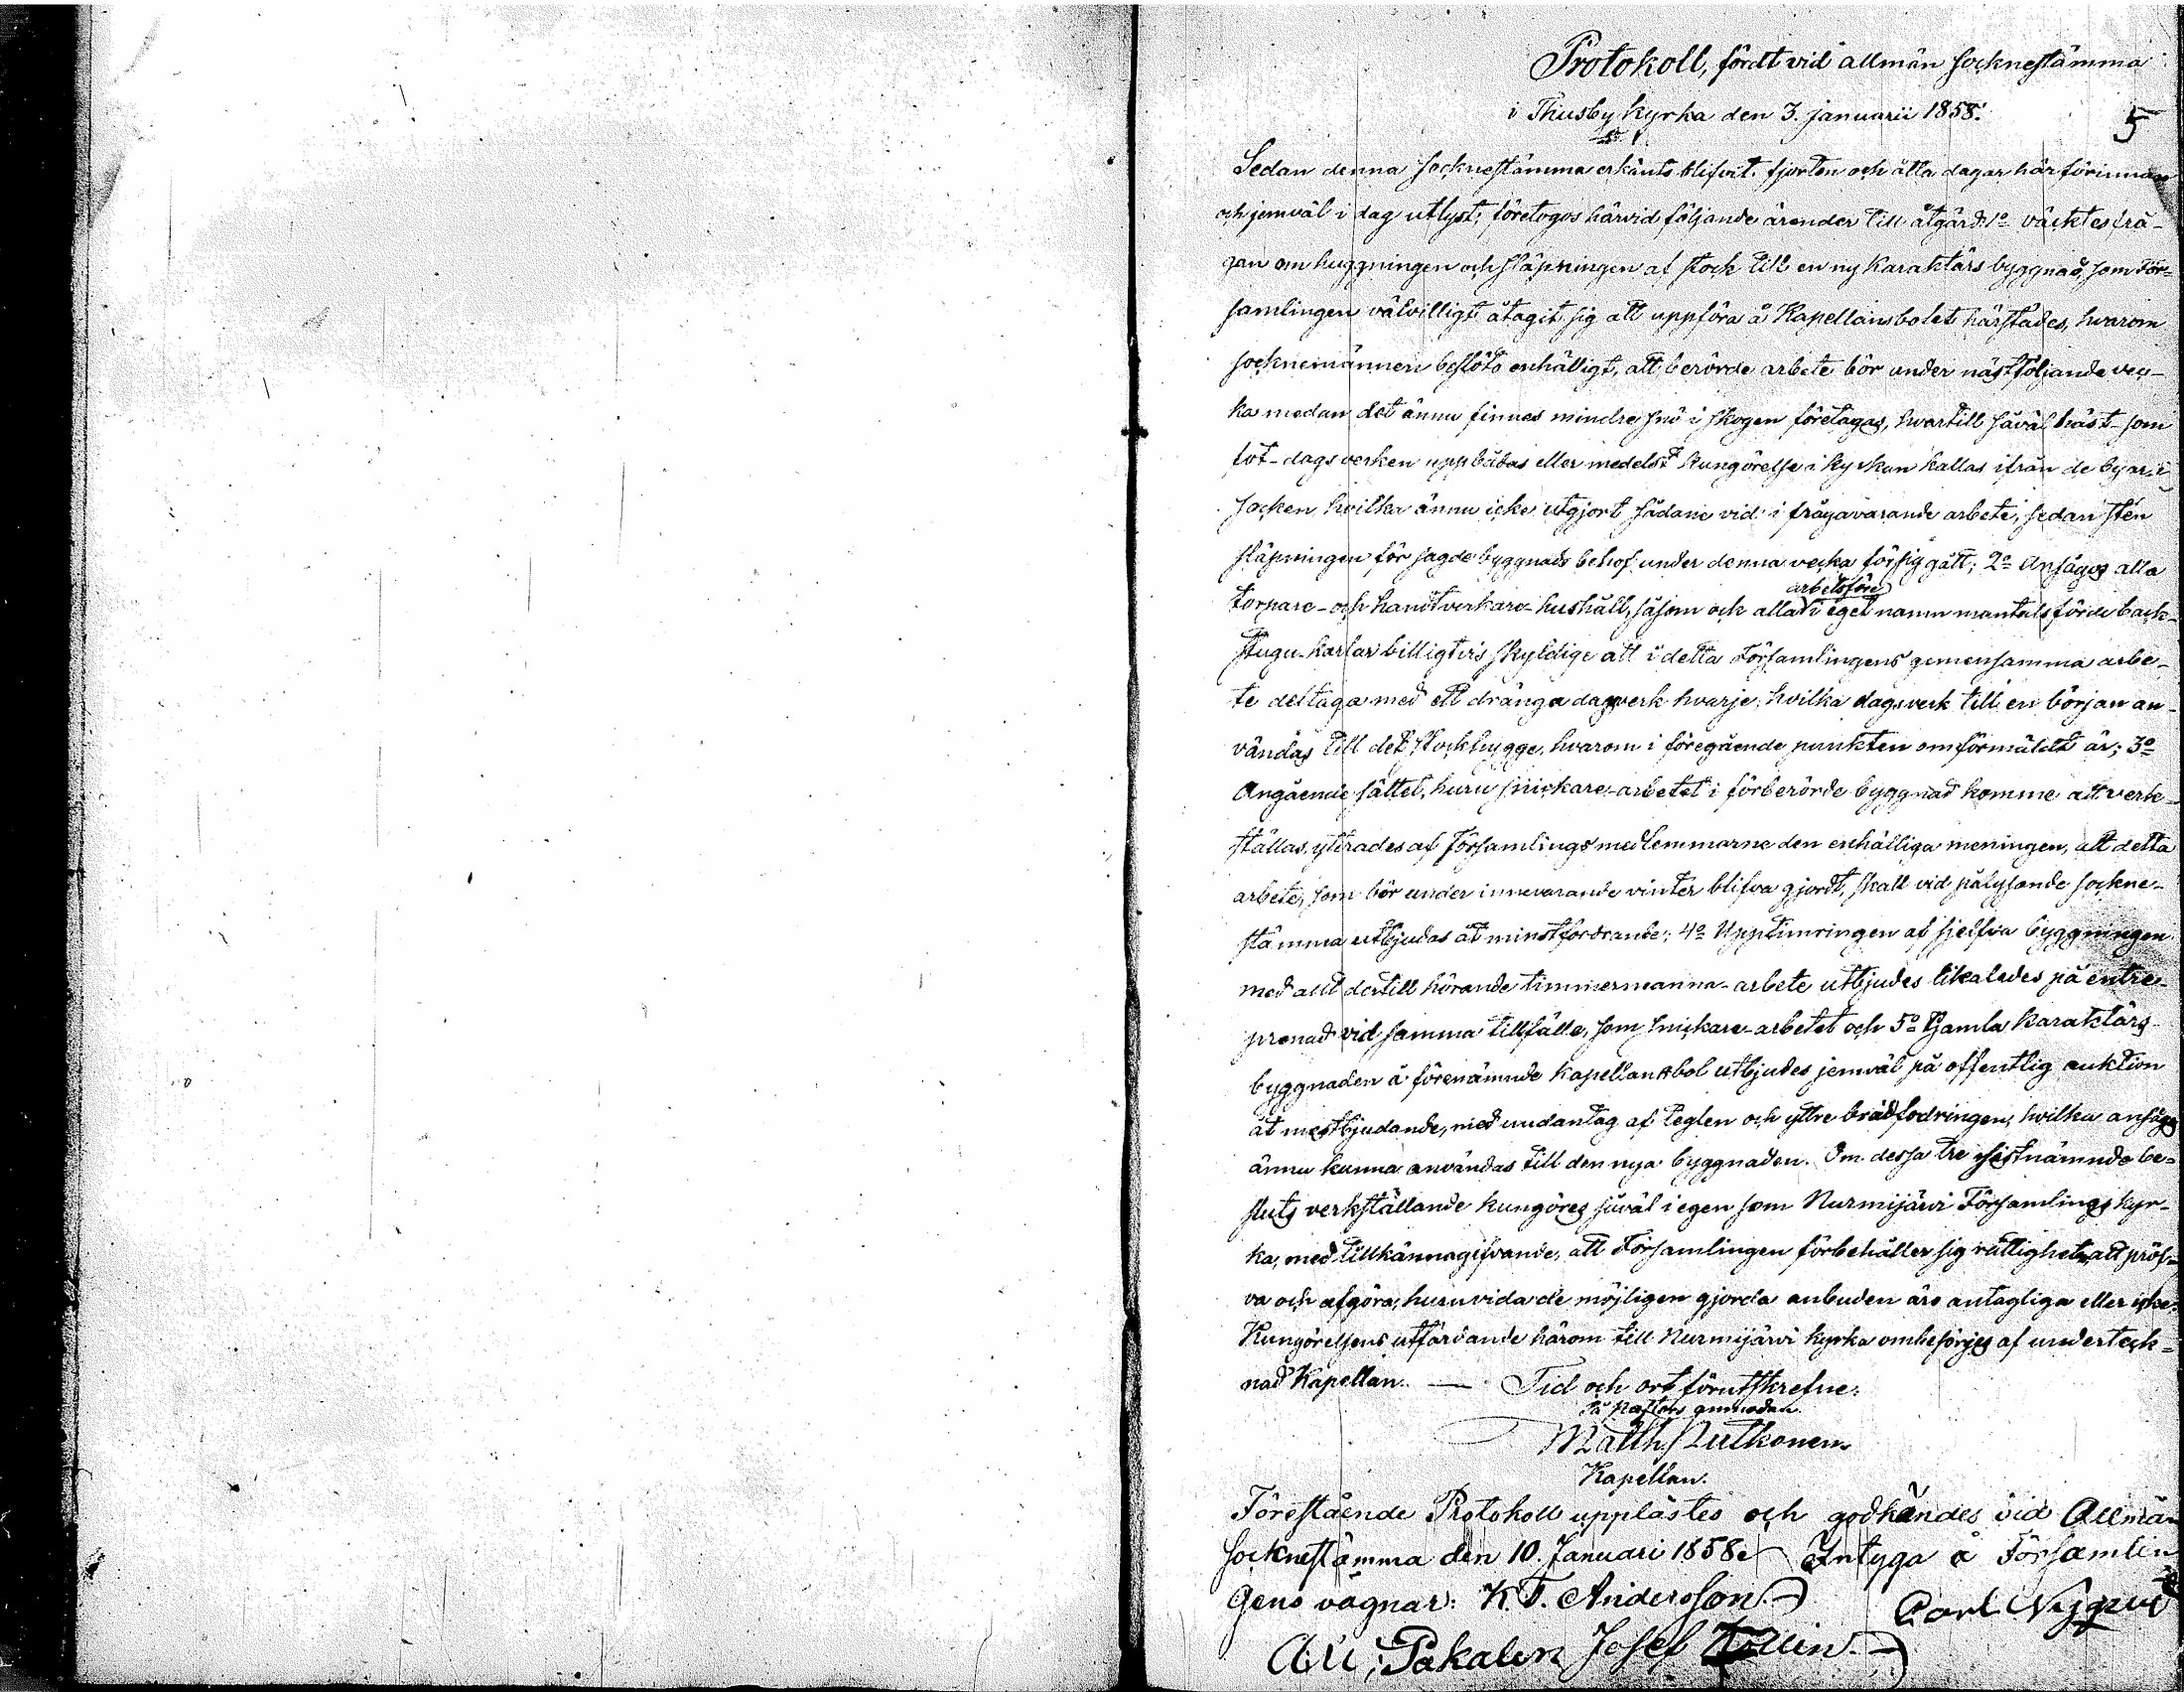 Protokoll, fördt vid allmän Socknestämma
i Thusby kyrka den 3. januarii 1858.
5
Sedan denna Socknestämma erkänts blifvit fjorton och åtta dagar här förinnan
och jemväl i dag utlyst, företogos härvid följande ärender till åtgärd: 1o väcktes frå-
gan om huggningen och släpningen af stock till en ny Karaktärs byggnad, som För-
samlingen välvilligt åtagit sig att uppföra å Kapellansbolet härstädes, hvarom
Socknemännen beslöto enhälligt, att berörde arbete bör under nästföljande vec-
ka medan det ännu finnes mindre snö i skogen företagas, hvartill såväl häst- som
fot-dagsverken uppbådas eller medelst kungörelse i kyrkan kallas ifrån de byar i
Socken hvilka ännu icke utgjort sådane vid i frågavarande arbete, sedan sten
släpningen för sagde byggnads behof under denna vecka försiggått; 2o Ansågos alla
arbetsföre
torpare- och handtverkare-hushåll, såsom ock alla i eget namn mantalsförde back-
stugu-karlar billigtvis skyldige att i detta Församlingens gemensamma arbe-
te deltaga med ett drängadagsverk hvarje, hvilka dagsverk till en början an-
vändas till det stockhygge, hvarom i föregående punkten omförmäldt är; 3o
Angående sättet, huru snickare-arbetet i förberörde byggnad komme att verk-
ställas, yttrades af Församlingsmedlemmarne den enhälliga meningen, att detta
arbete, som bör under innevarande vinter blifva gjordt, skall vid pålysande sockne-
stämma utbjudas åt minstfordrande; 4o Upptimringen af sjelfva byggningen
med allt dertill hörande timmermanna-arbete utbjudes likaledes på entre-
prenad vid samma tillfälle, som snickare-arbetet och 5o Gamla Karaktärs-
byggnaden å förenämnde Kapellansbol utbjudes jemväl på offentlig auktion
åt mestbjudande, med undantag af teglen och yttre brädfodringen, hvilka ansågos
ännu kunna användas till den nya byggnaden. Om dessa tre sistnämnde be-
sluts verkställande kungöres såväl i egen som Nurmijärvi Församlings kyr-
ka, med tillkännagifvande, att Församlingen förbehåller sig rättighet att pröf-
va och afgöra, huruvida de möjligen gjorda anbuden äro antagliga eller icke.
Kungörelsens utfärdande härom till Nurmijärvi kyrka ombesörjes af underteck-
nad Kapellan. — Tid och ort förutskrefne.
På Pastors anmodan
Matth. Nutkonen
Kapellan.
Förestående Protokoll upplästes och godkändes vid Allmän
Socknestämma den 10. Januari 1858. Intyga å Församlin
gens vägnar: K. F. Andersson. Carl Nyqvist
Josef